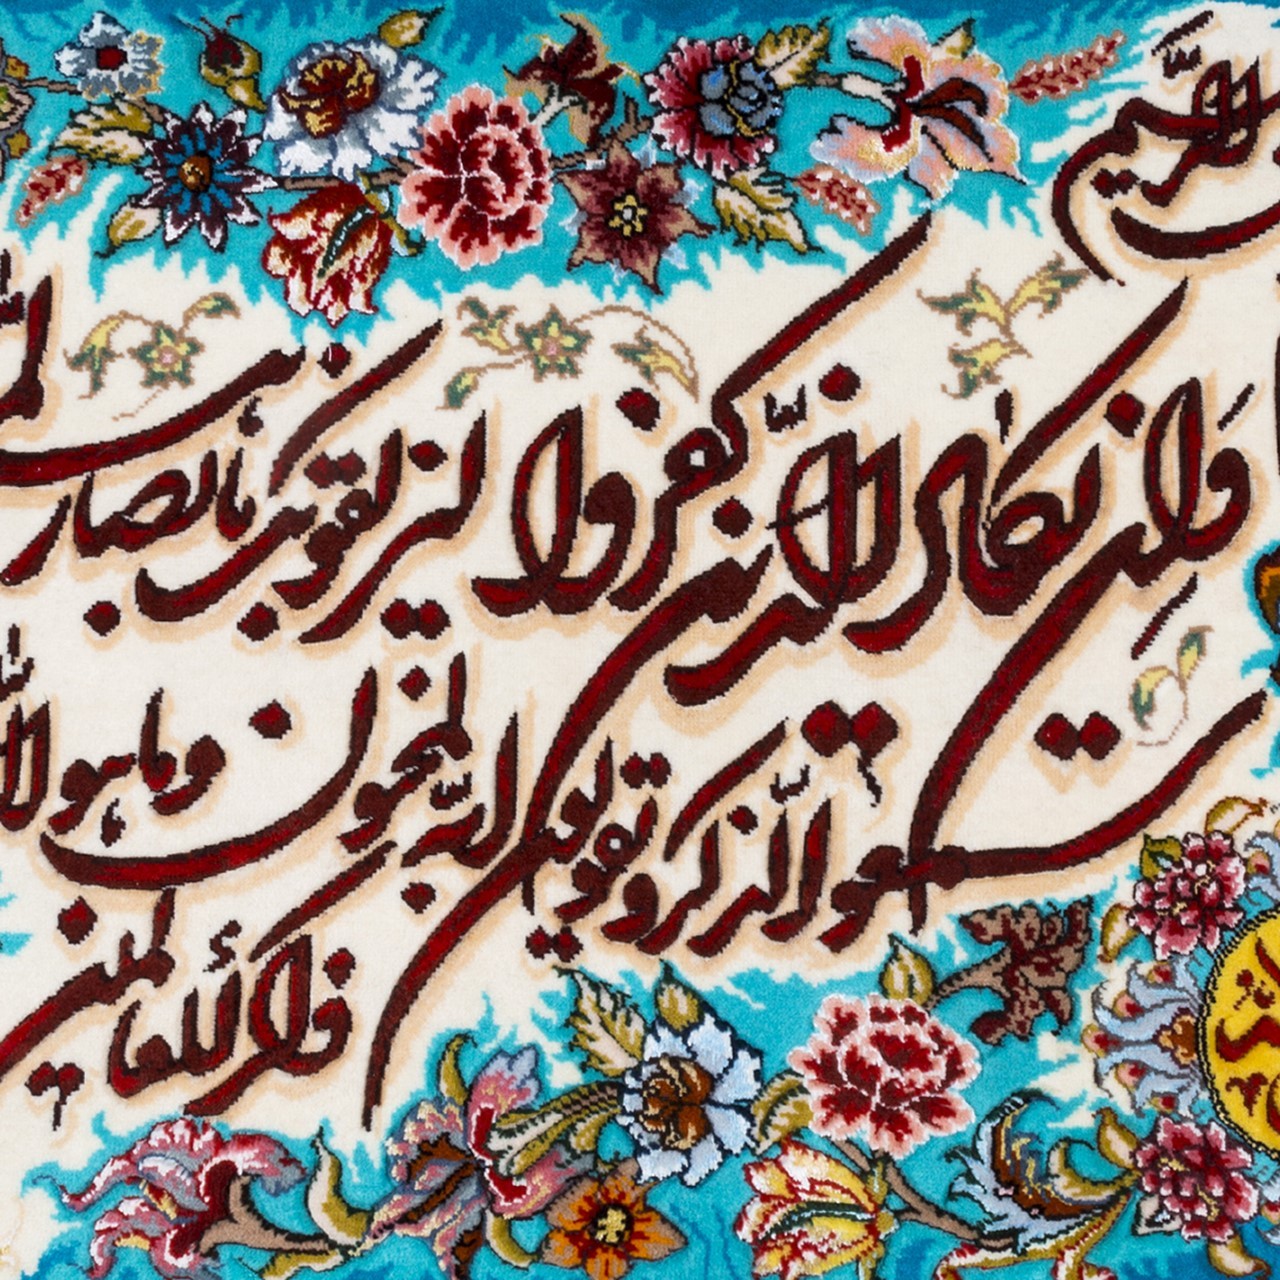 الرحیم
وَاِن یکاد الذین کفروا لیزلقونک بابصارهم لمّا
سمعوا الذّکر و یقولون انّه لمجنون و ما هو الّا
ذکر للعالمین